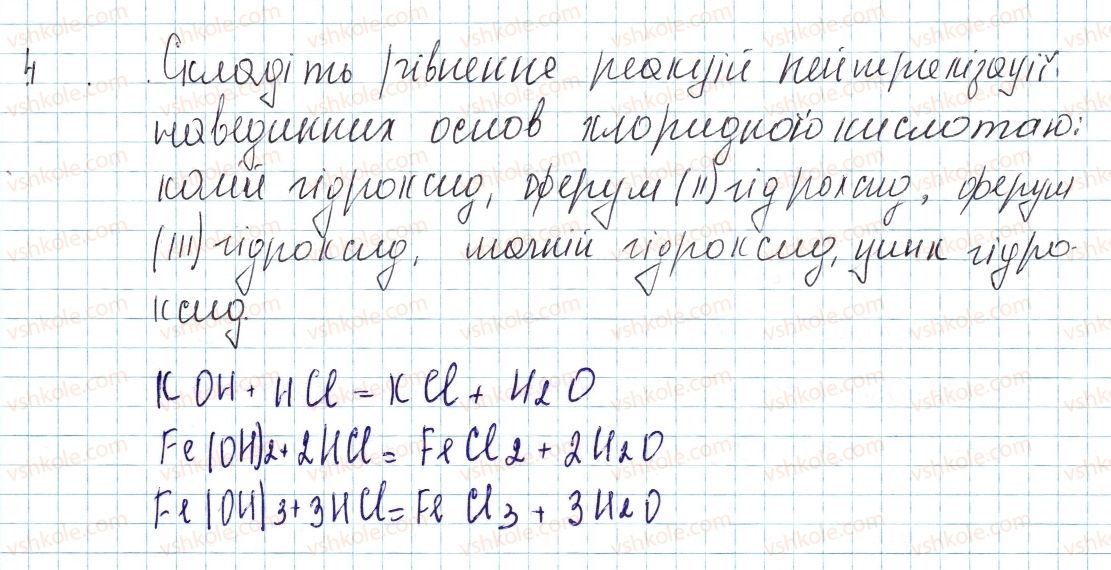 4 . Складіть рівнення реакцій нейтралізації
навединних основ хлоридною кислотаю:
калій гідроксид, ферум (II) гідроксид, ферум
(III) гідроксид, магній гідроксид, цинк гідро-
ксид.
KOH + HCl = KCl + H2O
Fe(OH)2 + 2HCl = FeCl2 + 2H2O
Fe(OH)3 + 3HCl = FeCl3 + 3H2O
vshkole.com